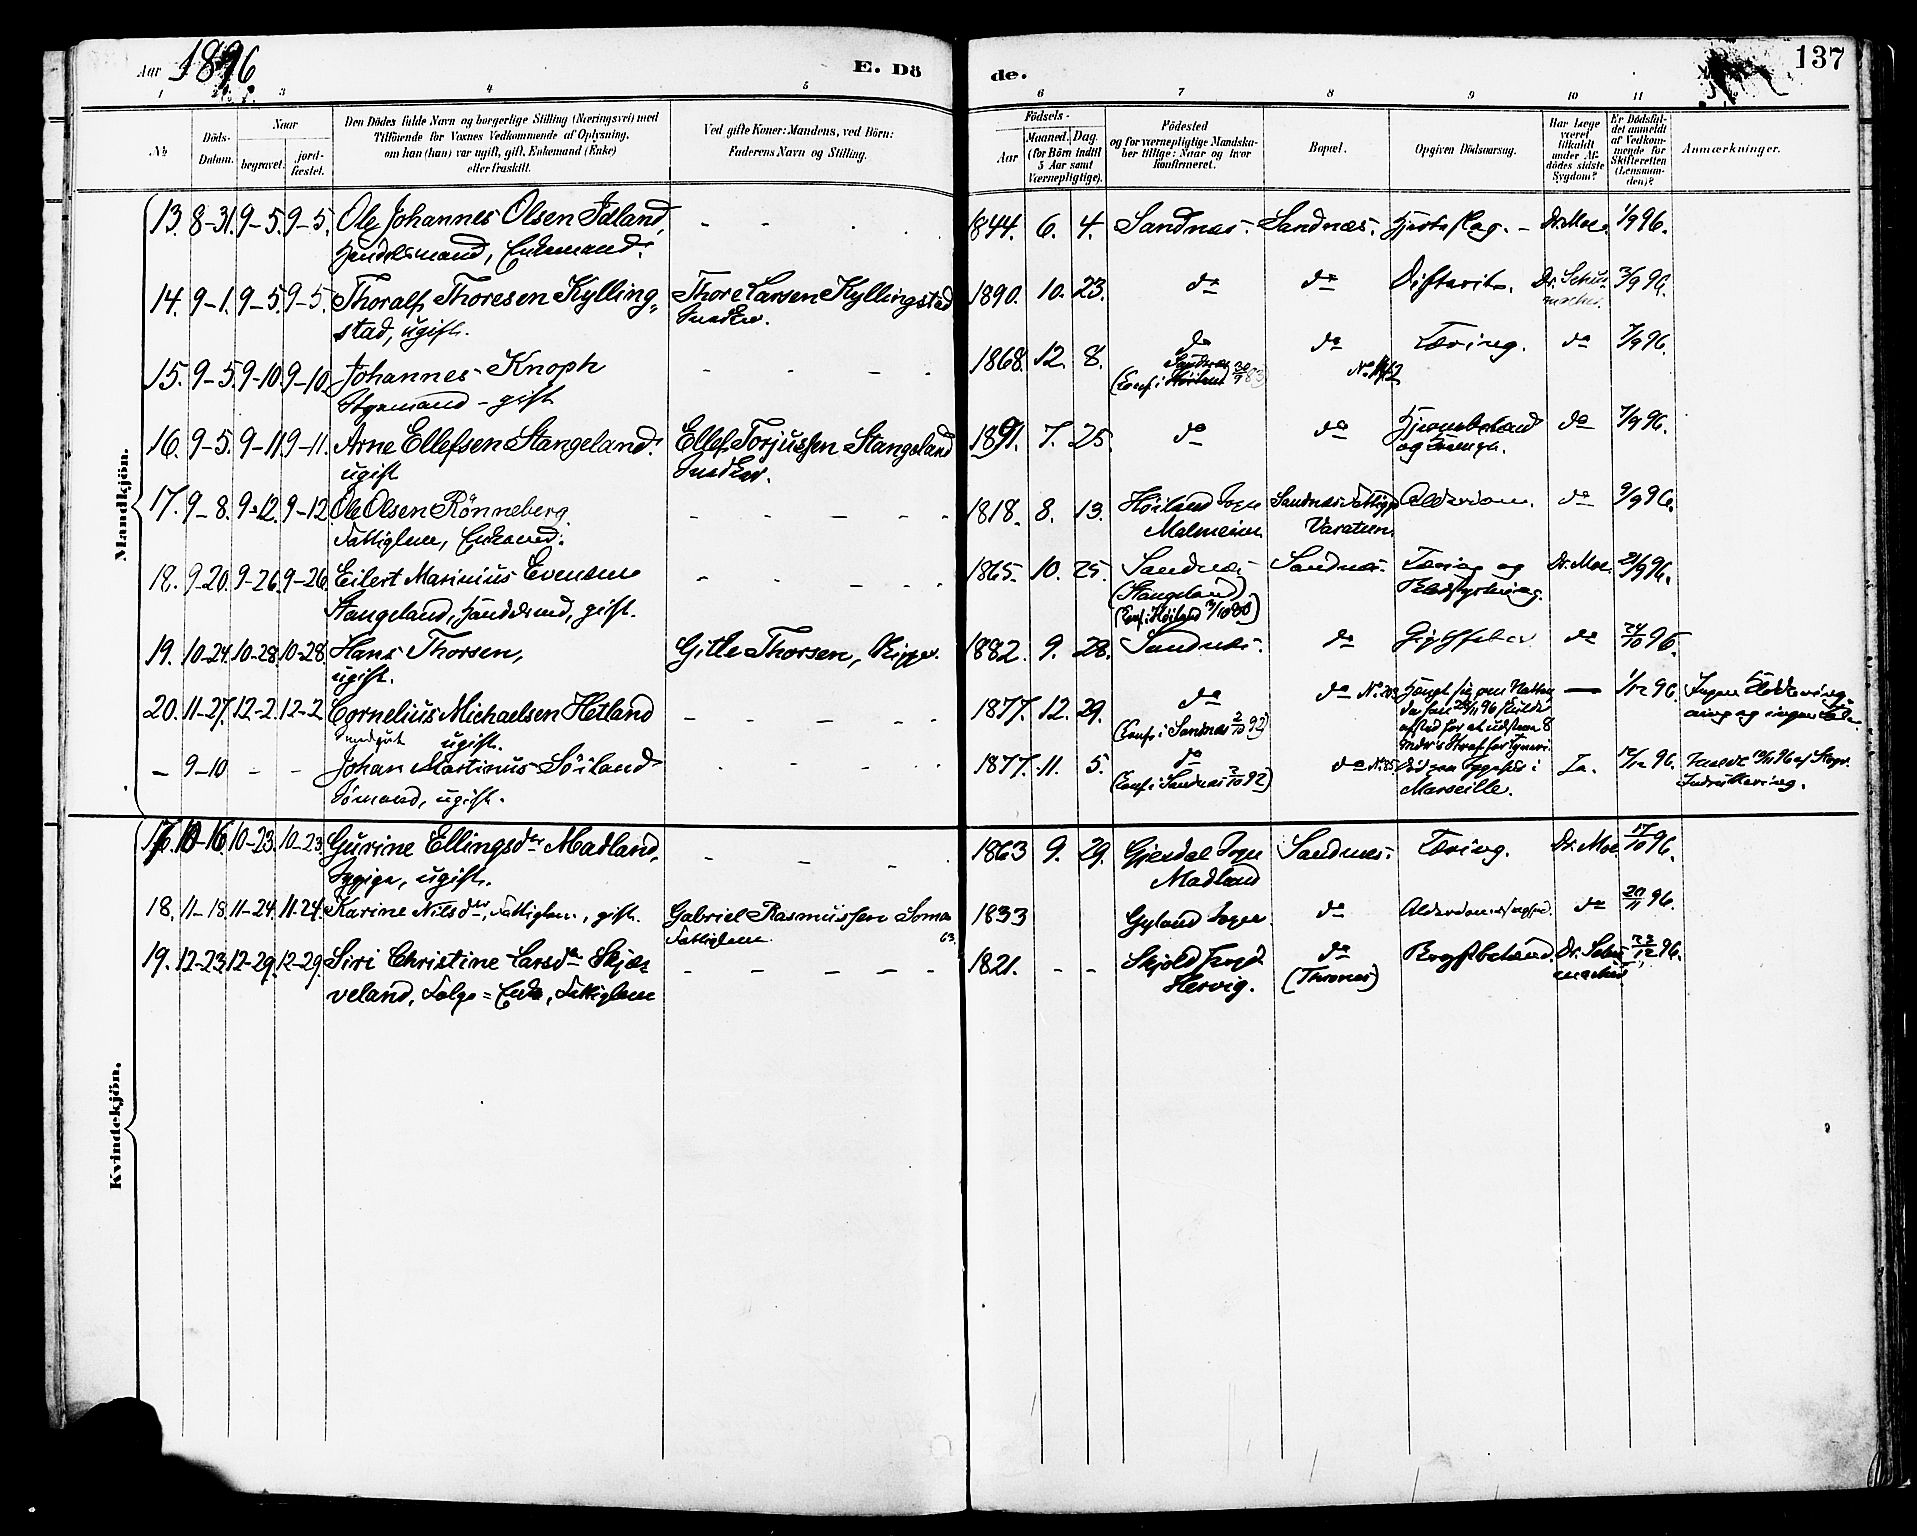 Aar 1896
E. Dö
de.
137
1 3 4 5 6 7 8 9 10 11
No
Döds-Datum.
Naar
begravet.
jord-fæstet.
Den Dödes fulde Navn og borgerlige Stilling (Næringsvei) med
Tilföiende for Voxnes Vedkommende af Oplysning,
om han (hun) var ugift, gift, Enkemand (Enke)
eller fraskilt.
Ved gifte Koner: Mandens, ved Börn:
Faderens Navn og Stilling.
Födsels-
Aar
Maaned. Dag.
(for Börn indtil
5 Aar samt
Værnepligtige).
Födested
og for værnepligtige Mandska-
ber tillige: Naar og hvor
konfirmeret.
Bopæl.
Opgiven Dödsaarsag.
Har Læge
været
tilkaldt
under Af-
dödes sidste
Sygdom?
Er Dödsfal-
det anmeldt
af Vedkom-
mende for
Skifteretten
(Lensman-
den)?
Anmærkninger.
Mandkjön.
13. 8-31. 9-5. 9-5. Ole Johannes Olsen Idland, - - . . 1844. 6. 4. Sandnæs. Sandnæs. Hjerteslag. - Dr. Moe. 1/9 96.
Handelsmand, Enkemand.
14. 9-1. 9-5. 9-5. Thoralf Thoresen Kylling- Thore Larsen Kyllingstad 1890. 10. 23. do do Difterit. Dr. 3/9 96.
stad, ugift. Snedker.
15. 9-5. 9-10. 9-10. Johannes Knoph - - - - 1868. 12. 8. do do Tæring. do 7/9 96.
Styrmand - gift (Conf. i Høiland 83) No 142
16. 9-5. 9-11. 9-11. Arne Ellefsen Stangeland. Ellef Torjussen Stangeland 1891. 7. 25. do do Hjernebetænd. do 7/9 96.
ugift Snedker. og Krampe.
17. 9-8. 9-12. 9-12. Ole Olsen Rönneberg. - - - - - 1818. 8. 13. Höiland Sogn Sandnæs Fattigg. Alderdom. do 9/9 96.
Fattiglem, Enkemd. Malmeim Varatun.
18. 9-20. 9-26. 9-26. Eilert Marinius Evensen - - - - 1865. 10. 25. Sandnæs Sandnæs. Tæring og Dr. Moe. 21/9 96.
Stangeland, gift. (Stangeland) Blodstyrtning.
(Conf. i Høiland 3/10 80)
19. 10-24. 10-28. 10-28. Hans Thorsen, Gitle Thorsen, Skipper. 1882. 9. 28. Sandnæs. do Gigtfeber do 24/10 96.
ugift.
20. 11-27. 12-2. 12-2. Cornelius Michaelsen Hetland - - - - - 1877. 12. 29. do do Hængt sig om Natten — 1/12 96.
ugift. (Conf. i Sandnæs 2/10 92) da han 28/11 96 skulde
afsted for at udstaa 8
Mdr's Straf for Tyveri.
- 9-10 - - Johan Martinus Söiland - - - - - 1877. 11. 5. do do Död paa Sygehus i Ja. 12/12 96.
Sømand, ugift. (Conf. i Sandnæs 2/10 92) Marseille. Indrullering.
Kvindekjön.
17. 10-16. 10-23. 10-23. Gurine Ellingsdtr Madland, - - - - 1863 9. 29. Gjesdal Sogn Sandnæs. Tæring. Dr. Moe. 17/10 96.
ugift. Madland
18. 11-18. 11-24. 11-24. Karine Nilsdtr, Fattiglem, gift. Gabriel Rasmussen Soma 1833 Gyland Sogn. do do 20/11 96.
Fattiglem 63.
19. 12-23. 12-29. 12-29. Siri Christine Larsdtr Skjæ- - - - - - 1821. - - Skjold Sogn do Brystbetænd. Dr. 23/12 96.
veland, Enke, Fattiglem Hervig. (Thrones)